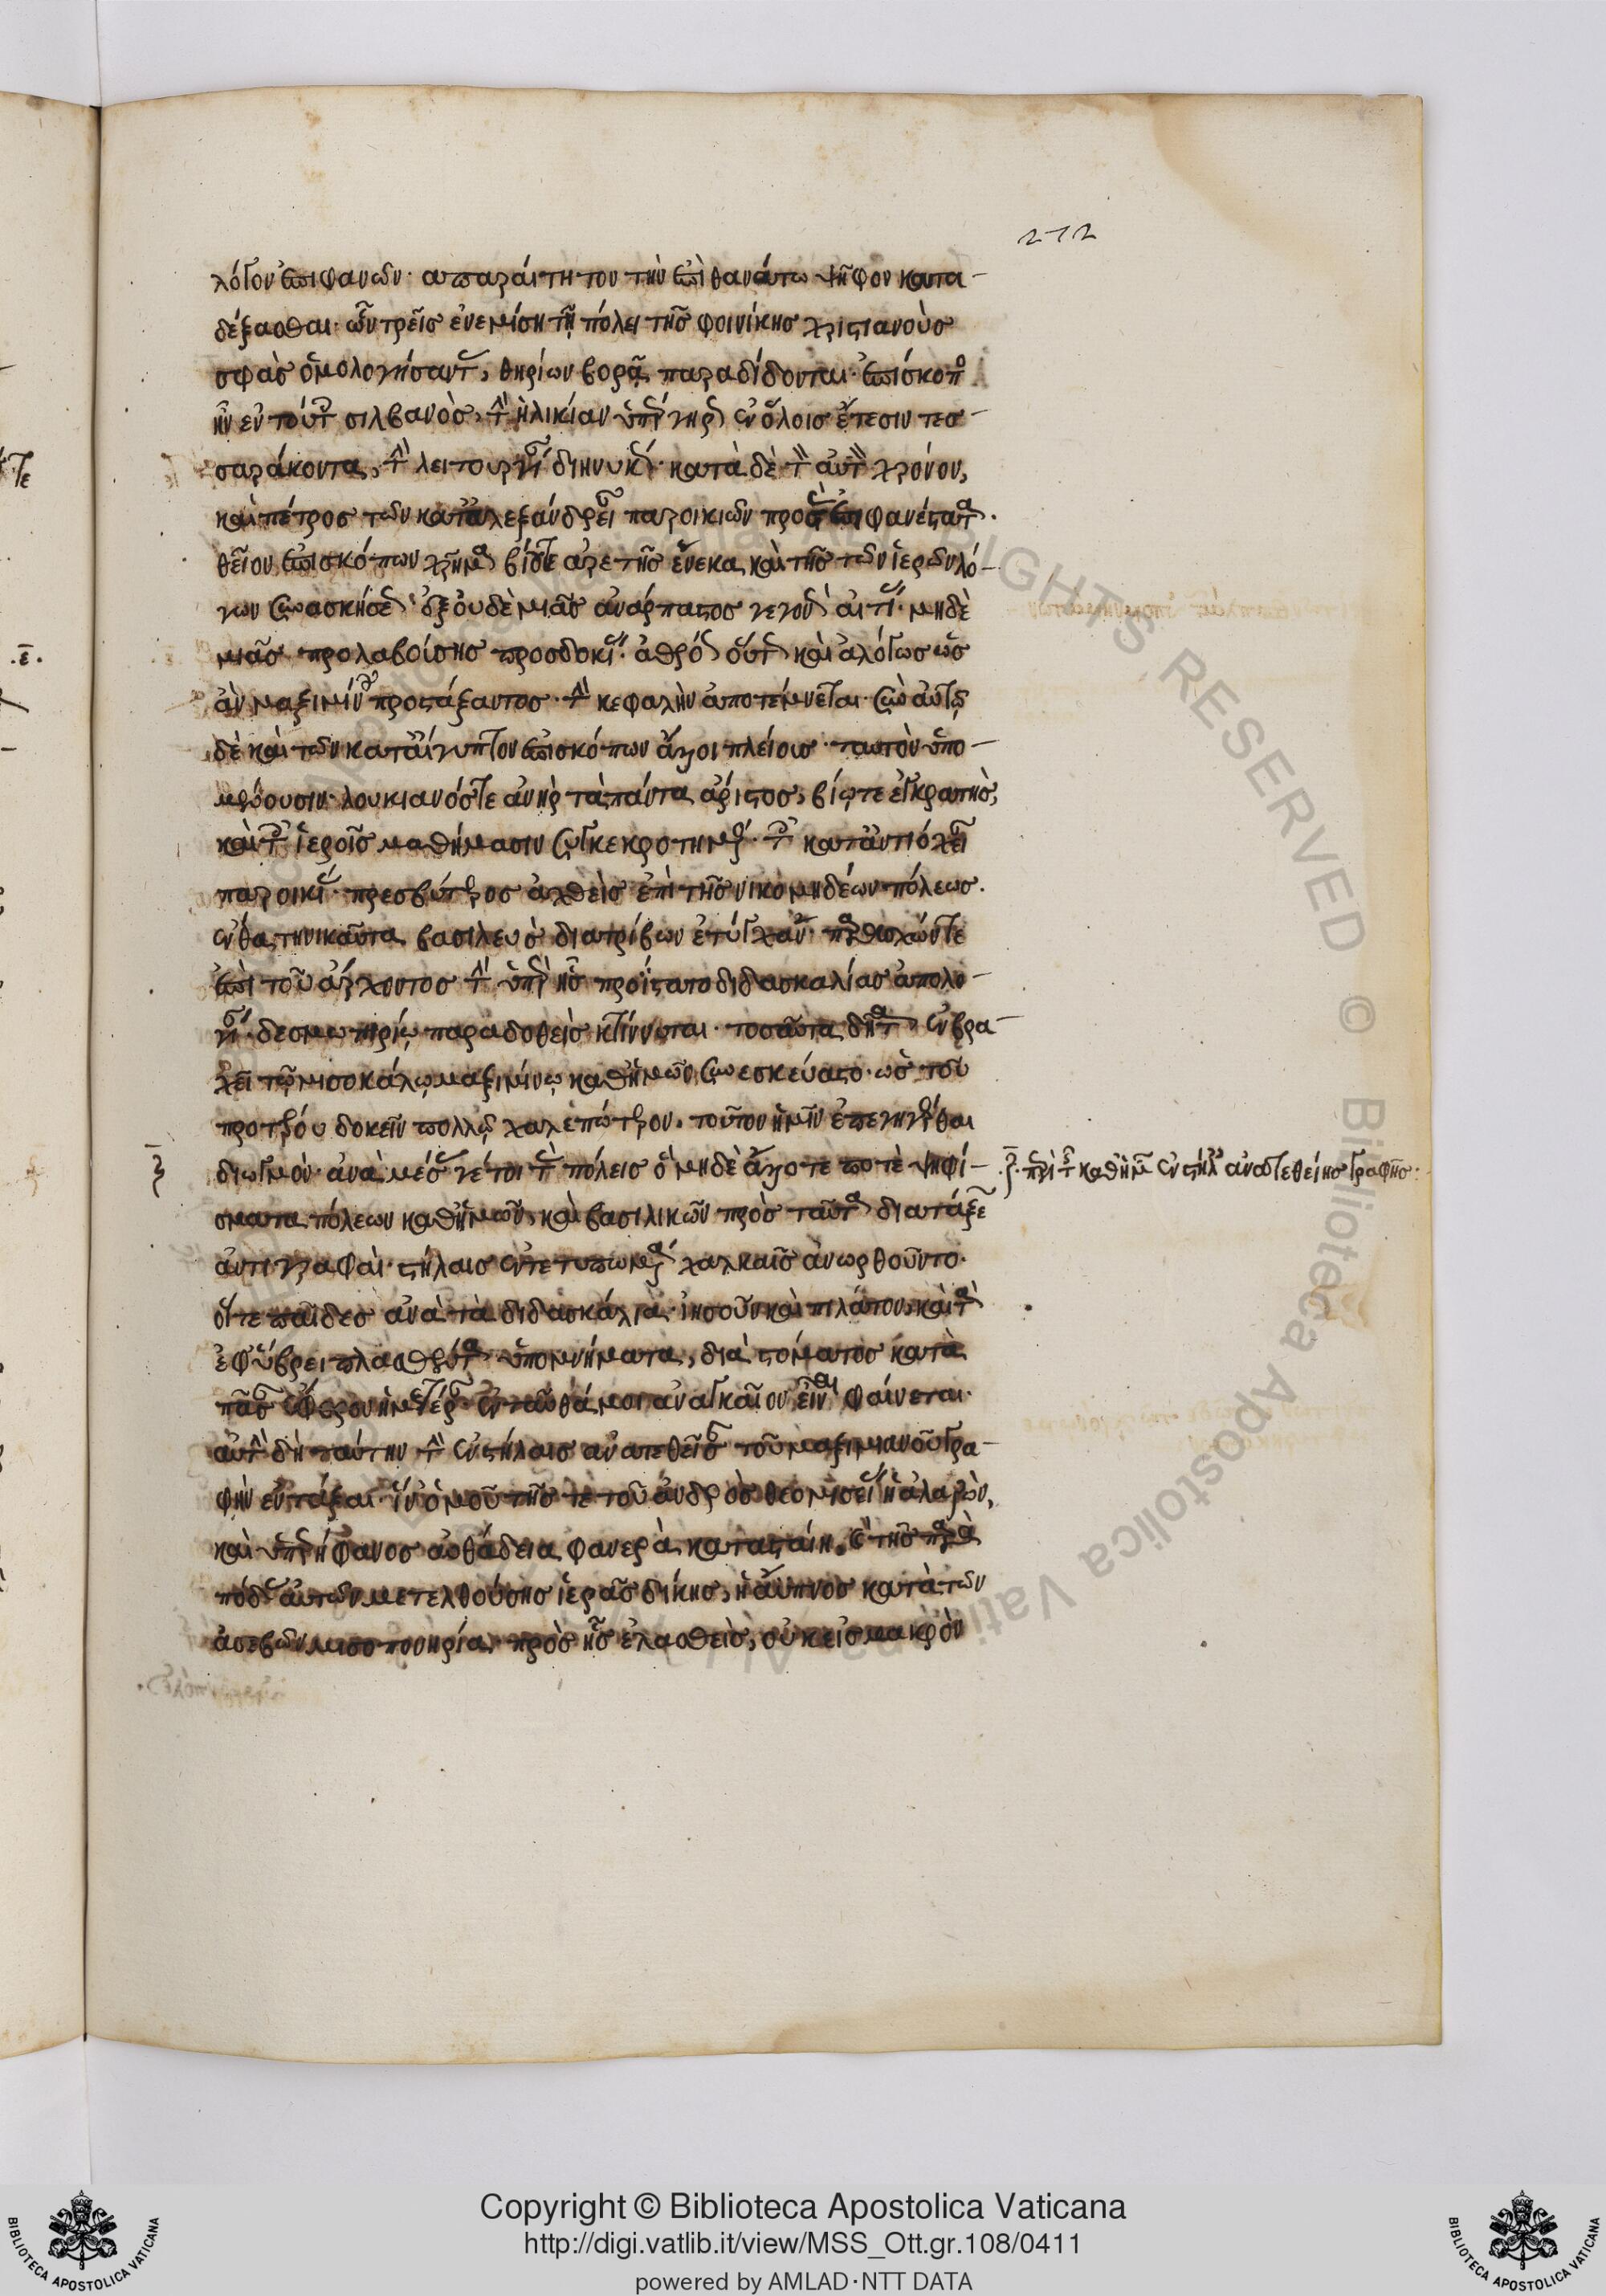 212
λόγον ἐπιφανῶν· ἀπαραίτητον τὴν ἐπὶ θανάτω ψῆφον κατα-
δέξασθαι· ὧν τρεῖς ἐν ἐμίση τῇ πόλει τῆς φοινίκης χριστιανοὺς
σφᾶς ὁμολογήσαντες, θηρίων βορᾷ παραδίδονται· ἐπίσκοπος
ἦν ἐν τούτοις σιλβανὸς, τὴν ἡλικίαν ὑπέργηρως ἐν ὅλοις ἔτεσιν τεσ-
σαράκοντα, τὴν λειτουργίαν διηνυκώς· κατὰ δὲ τὸν αὐτὸν χρόνον,
καὶ πέτρος τῶν κατ' ἀλεξάνδρειαν παροικιῶν προεστὼς ἐπιφανέστατα·
θεῖον ἐπισκόπων χρῆμα βίου τε ἀρετῆς ἕνεκα καὶ τῆς τῶν ἱερῶν λό-
γων συνασκήσεως ἐξ οὐδὲ μιᾶς ἀνάρπαστος γεγονὼς αἰτίας· μηδὲ
μιᾶς προλαβούσης προσδοκίας· ἀθρόως οὕτως καὶ ἀλόγως ὡς
ἂν μαξιμίνου προστάξαντος· τὴν κεφαλὴν ἀποτέμνεται· σὺν αὐτῷ
δὲ καὶ τῶν κατ' αἴγυπτον ἐπισκόπων ἄλλοι πλείους· ταυτὸν ὑπο-
μένουσιν· λουκιανός τε ἀνὴρ τὰ πάντα ἄριστος, βίῳ τε ἐγκρατὴς,
καὶ τοῖς ἱεροῖς μαθήμασιν συγκεκροτημένος· τῆς κατ' ἀντιόχειαν
παροικίας· πρεσβύτερος ἀχθεὶς ἐπὶ τῆς νικομηδέων πόλεως.
ἔνθα τηνικαῦτα βασιλεὺς διατρίβων ἐτύγχανε· παρασχών τε
ἐπὶ τοῦ ἄρχοντος τὴν ὑπὲρ ἧς προΐστατο διδασκαλίας ἀπολο-
γίαν· δεσμωτηρίῳ παραδοθεὶς κτίννυται· τοσαῦτα δῆτα ἐν βρα-
χεῖ τῷ μισοκάλῳ μαξιμίνῳ καθ' ἡμῶν συνεσκεύαστο· ὡς τοῦ
προτέρου δοκεῖν πολλῷ χαλεπώτερον. τοῦτον ἡμῖν ἐπεγηγέρθαι
διωγμόν· ἀνὰ μέσας γέ τοι τὰς πόλεις ὃ μηδὲ ἄλλοτέ ποτὲ ψηφί-
σματα πόλεων καθ' ἡμῶν, καὶ βασιλικῶν πρὸς ταῦτα διατάξεων
ἀντιγραφαὶ· στήλαις ἐντετυπωμένα χαλκαῖς ἀνωρθοῦντο·
οἵ τε παῖδες ἀνὰ τὰ διδασκάλια· ἰησοῦν καὶ πιλάτον, καὶ τὰ
ἐφ' ὕβρει πλασθέντα ὑπομνήματα, διὰ στόματος κατὰ
πᾶσαν ἔφερον ἡμέραν· ἐνταῦθά μοι ἀναγκαῖον εἶναι φαίνεται·
αὐτὴν δὴ ταύτην τὴν ἐν στήλαις ἀνατεθεῖσαν τοῦ μαξιμιανοῦ γρα-
φὴν ἐντάξαι· ἵν' ὁμοῦ τῆς τε τοῦ ἀνδρὸς θεομισείας ἡ ἀλαζὼν,
καὶ ὑπερήφανος αὐθάδεια φανερὰ κατασταίη. καὶ τῆς παρὰ
πόδας αὐτῶν μετελθούσης ἱερᾶς δίκης, ἡ ἄυπνος κατὰ τῶν
ἀσεβῶν μισοπονηρία· πρὸς ἧς ἐλαθεὶς, οὐκ εἰς μακρὸν
ζ· περὶ τῆς καθ' ἡμῶν ἐν στήλαις ἀνατεθείσης γραφῆς·
Copyright © Biblioteca Apostolica Vaticana
http://digi.vatlib.it/view/MSS_Ott.gr.108/0411
powered by AMLAD·NTT DATA